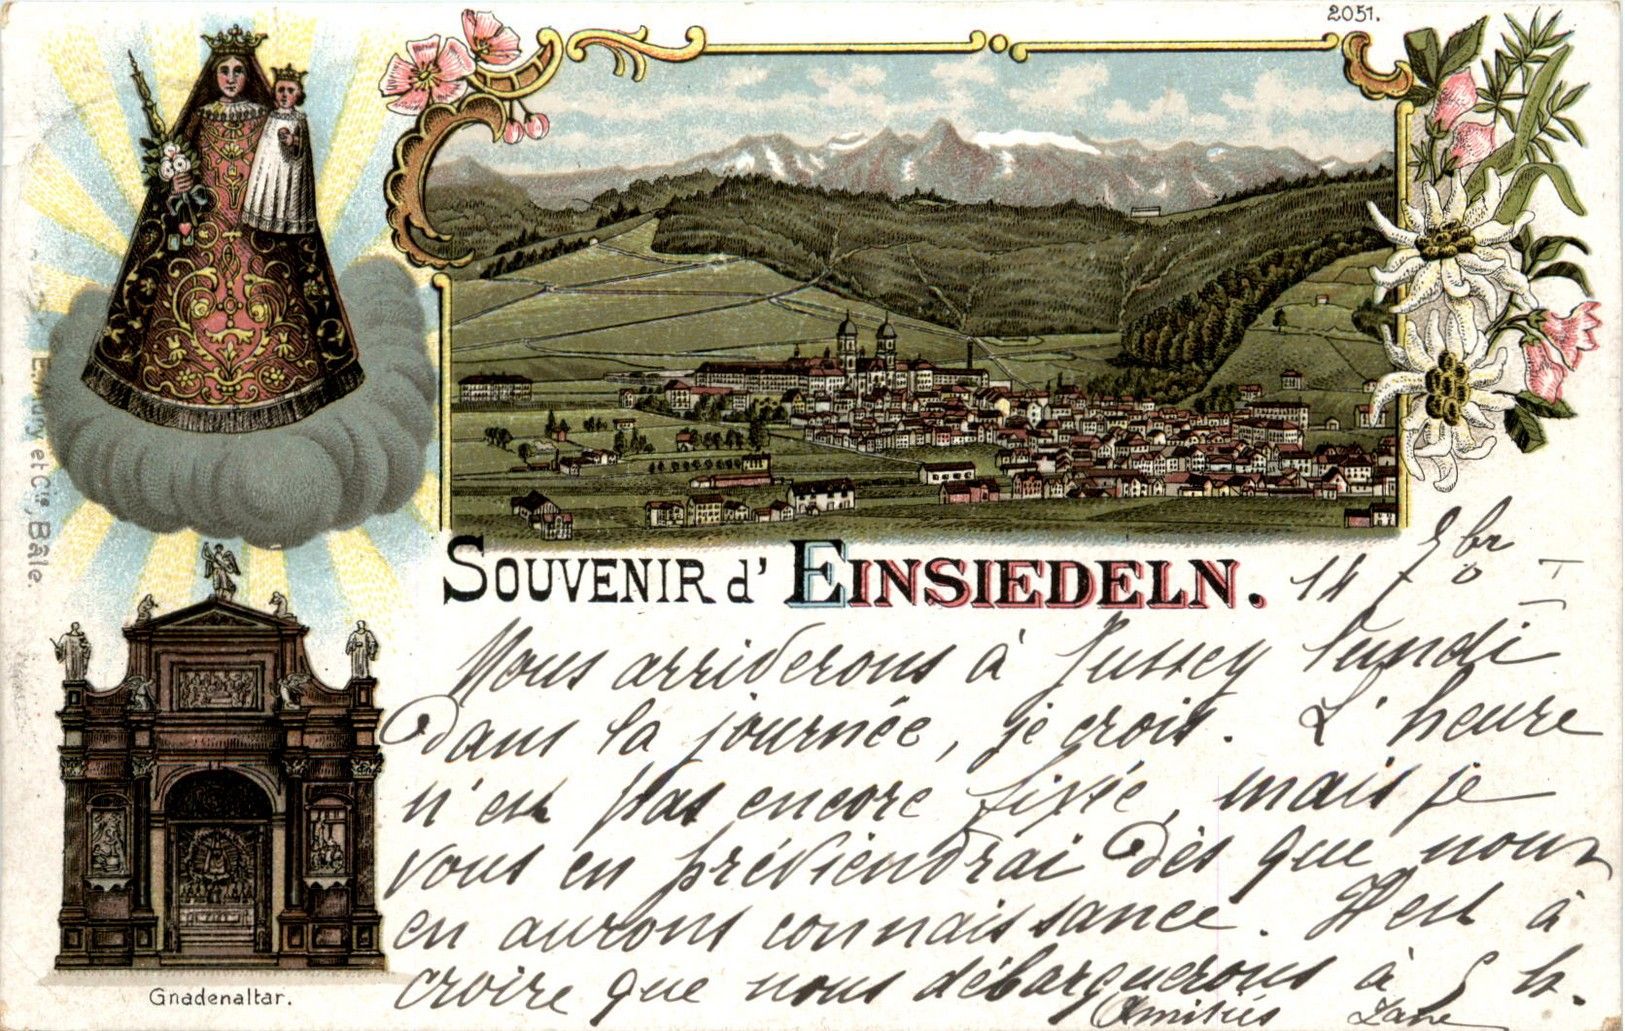 2051.
Et Cie, Bâle.
SOUVENIR d' EINSIEDELN.
14 7br
Nous arriverons à Jussey lundi
dans la journée, je crois. L'heure
n'est pas encore fixée, mais je
vous en préviendrai dès que nous
en aurons connaissance. Il est à
croire que nous débarquerons à 5 h.
Amitiés
Gnadenaltar.